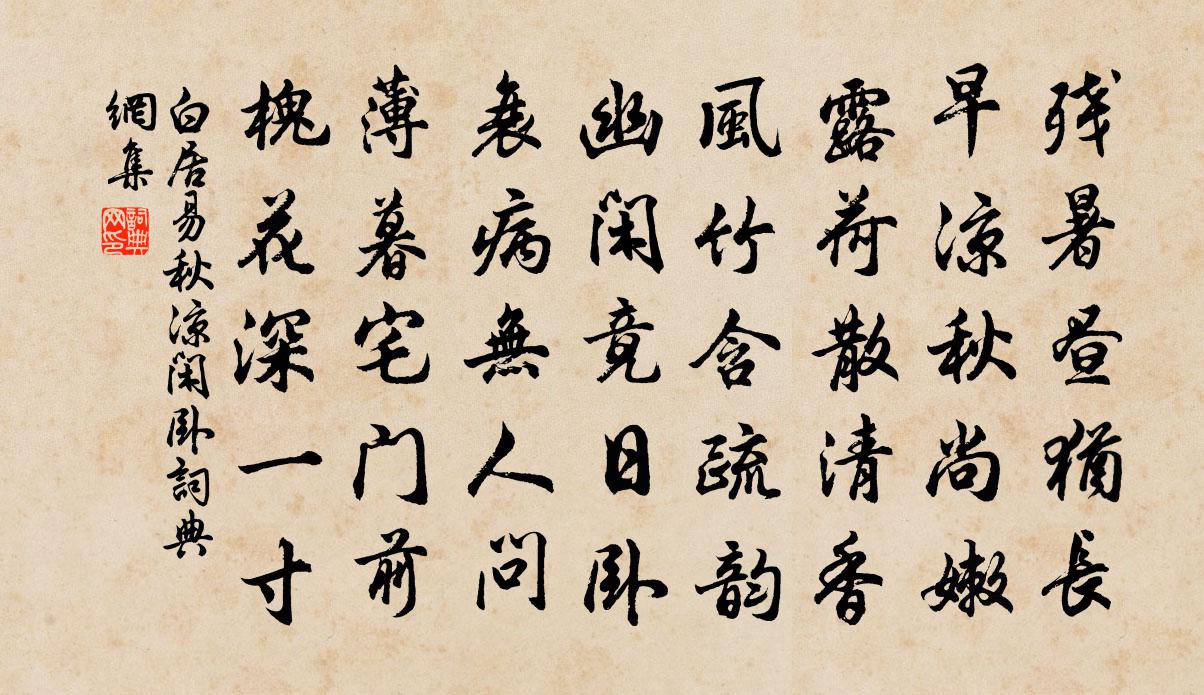 残暑昼猶長
早凉秋尚嫩
露荷散清香
風竹含疏韵
幽閑竟日卧
衰病無人問
薄暮宅门前
槐花深一寸
白居易秋凉閑卧詞典
網集
詞典
网印